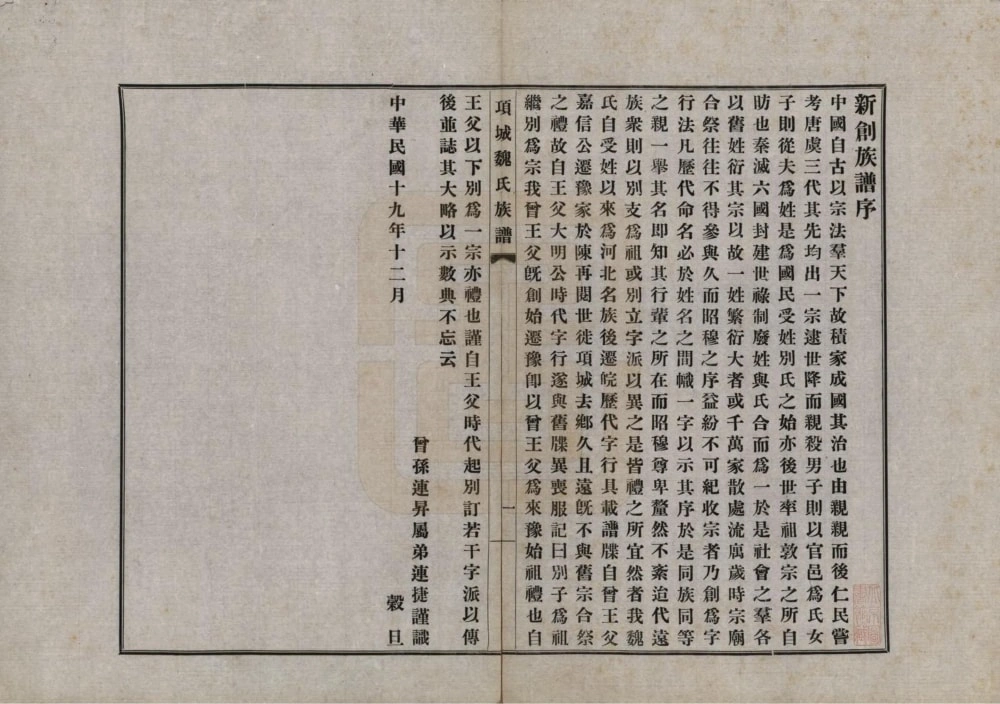 新創族譜序
中國自古以宗法羣天下故積家成國其治也由親親而後仁民嘗
考唐虞三代其先均出一宗逮世降而親殺男子則以官邑爲氏女
子則從夫爲姓是爲國民受姓別氏之始亦後世率祖敦宗之所自
昉也秦滅六國封建世祿制廢姓與氏合而爲一於是社會之羣各
以舊姓衍其宗以故一姓繁衍大者或千萬家散處流寓歲時宗廟
合祭往往不得參與久而昭穆之序益紛不可紀收宗者乃創爲字
行法凡歷代命名必於姓名之間幟一字以示其序於是同族同等
之親一舉其名即知其行輩之所在而昭穆尊卑釐然不紊迨代遠
族衆則以別支爲祖或別立字派以異之是皆禮之所宜然者我魏
氏自受姓以來爲河北名族後遷皖歷代字行具載譜牒自曾王父
嘉信公遷豫家於陳再閱世徙項城去鄉久且遠旣不與舊宗合祭
之禮故自王父大明公時代字行遂與舊牒異喪服記曰別子爲祖
繼別爲宗我曾王父旣創始遷豫卽以曾王父爲來豫始祖禮也自
項城魏氏族譜
一
王父以下別爲一宗亦禮也謹自王父時代起別訂若干字派以傳
後並誌其大略以示數典不忘云
曾孫連昇屬弟連捷謹識
中華民國十九年十二月 穀旦